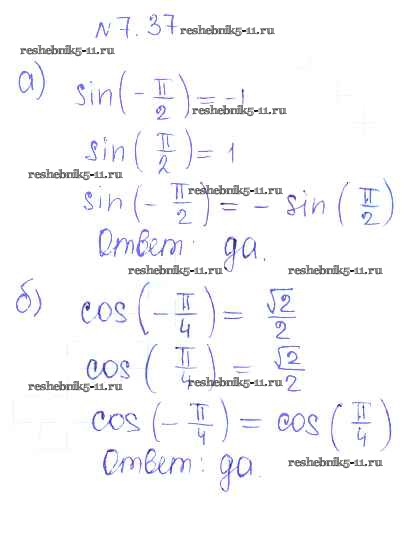 № 7.37
reshebnik5-11.ru
reshebnik5-11.ru
а) sin(-π/2) = -1
reshebnik5-11.ru
sin(π/2) = 1
reshebnik5-11.ru
reshebnik5-11.ru
sin(-π/2) = - sin(π/2)
Ответ: да.
reshebnik5-11.ru reshebnik5-11.ru
б) cos(-π/4) = √2/2
cos(π/4) = √2/2
reshebnik5-11.ru reshebnik5-11.ru
cos(-π/4) = cos(π/4)
Ответ: да.
reshebnik5-11.ru